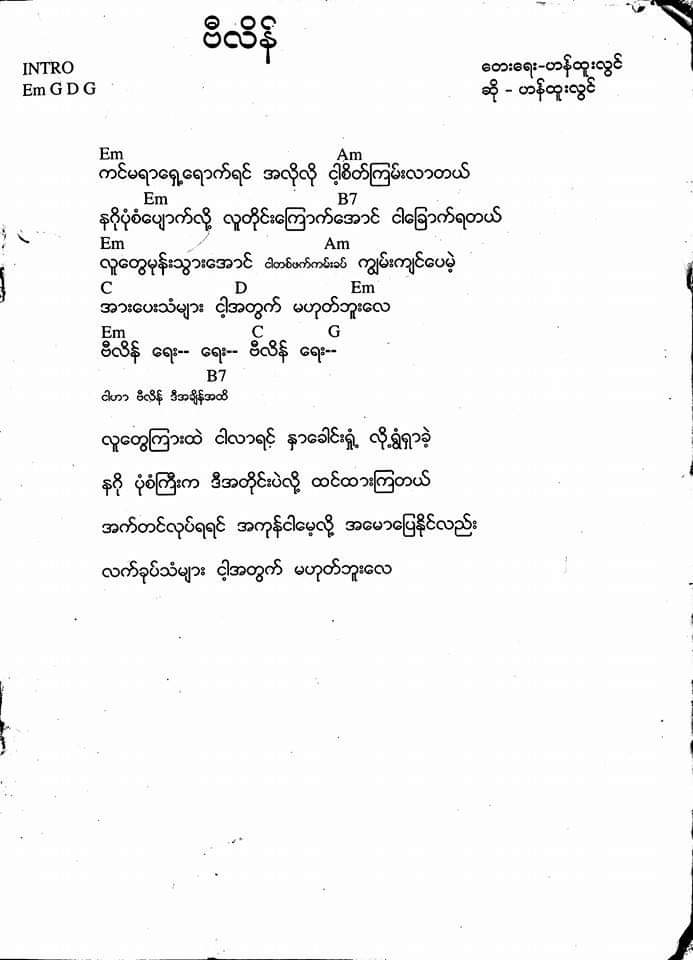 ဗီလိန်
INTRO
Em G D G
တေးရေး-ဟန်ထူးလွင်
ဆို - ဟန်ထူးလွင်
Em Am
ကင်မရာရှေ့ရောက်ရင် အလိုလို ငါ့စိတ်ကြမ်းလာတယ်
Em B7
နဂိုပုံစံပျောက်လို့ လူတိုင်းကြောက်အောင် ငါခြောက်ရတယ်
Em Am
လူတွေမုန်းသွားအောင် ငါတစ်ဖက်ကမ်းခပ် ကျွမ်းကျင်ပေမဲ့
C D Em
အားပေးသံများ ငါ့အတွက် မဟုတ်ဘူးလေ
Em C G
ဗီလိန် ရေး-- ရေး-- ဗီလိန် ရေး--
B7
ငါဟာ ဗီလိန် ဒီအချိန်အထိ
လူတွေကြားထဲ ငါလာရင့် နှာခေါင်းရှုံ့ လို့ရွံရှာခဲ့
နဂို ပုံစံကြီးက ဒီအတိုင်းပဲလို့ ထင်ထားကြတယ်
အက်တင်လုပ်ရရင် အကုန်ငါမေ့လို့ အမောပြေနိုင်လည်း
လက်ခုပ်သံများ ငါ့အတွက် မဟုတ်ဘူးလေ